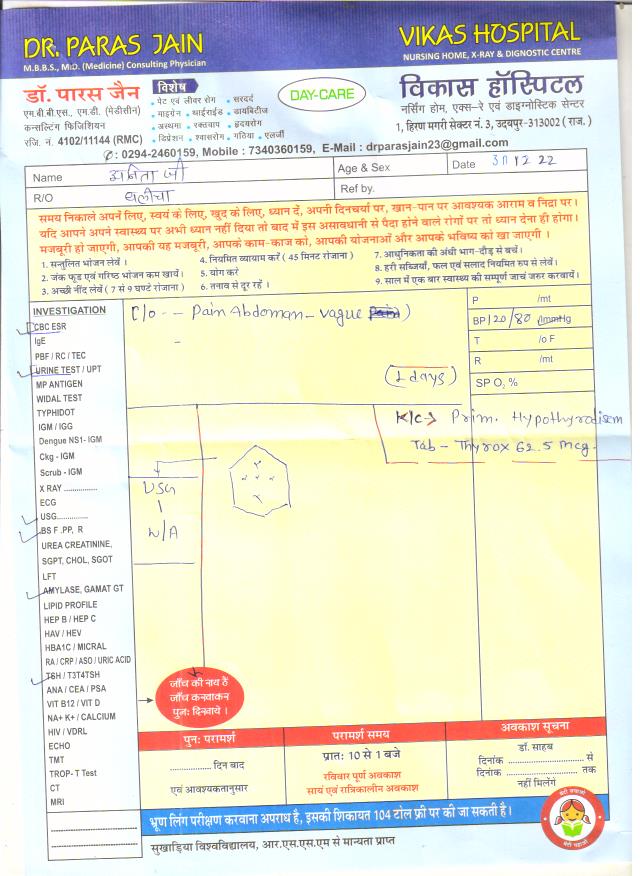 DR. PARAS JAIN
M.B.B.S., M.D. (Medicine) Consulting Physician
VIKAS HOSPITAL
NURSING HOME, X-RAY & DIGNOSTIC CENTRE
डॉ. पारस जैन
एम.बी.बी.एस., एम.डी. (मेडीसीन)
कन्सल्टिंग फिजिशियन
रजि. नं. 4102/11144 (RMC)
विशेष
• पेट एवं लीवर रोग • सरदर्द
• माइग्रेन • थाईराईड • डायबिटीज
• अस्थमा • रक्तचाप • हृदयरोग
• डिप्रेशन • श्वासरोग • गठिया • एलर्जी
DAY-CARE
विकास हॉस्पिटल
नर्सिंग होम, एक्स-रे एवं डाइग्नोस्टिक सेन्टर
1, हिरण मगरी सेक्टर नं. 3, उदयपुर-313002 (राज.)
: 0294-2460159, Mobile : 7340360159, E-Mail : drparasjain23@gmail.com
Name अनिता जी
Age & Sex
Date 30 12 22
R/O
Ref by.
समय निकाले अपने लिए, स्वयं के लिए, खुद के लिए, ध्यान दें, अपनी दिनचर्या पर, खान-पान पर आवश्यक आराम व निद्रा पर।
यदि आपने अपने स्वास्थ्य पर अभी ध्यान नहीं दिया तो बाद में इस असावधानी से पैदा होने वाले रोगों पर तो ध्यान देना ही होगा।
मजबूरी हो जाएगी, आपकी यह मजबूरी, आपके काम-काज को, आपकी योजनाओं और आपके भविष्य को खा जाएगी ।
1. सन्तुलित भोजन लेवें ।
2. जंक फूड एवं गरिष्ठ भोजन कम खायें।
3. अच्छी नींद लेवें ( 7 से 9 घण्टे रोजाना )
4. नियमित व्यायाम करें ( 45 मिनट रोजाना )
5. योग करें
6. तनाव से दूर रहें ।
7. आधुनिकता की अंधी भाग-दौड़ से बचें।
8. हरी सब्जियाँ, फल एवं सलाद नियमित रुप से लेवें।
9. साल में एक बार स्वास्थ्य की सम्पूर्ण जाचं जरुर करवायें।
INVESTIGATION
CBC ESR
IgE
PBF / RC / TEC
URINE TEST / UPT
MP ANTIGEN
WIDAL TEST
TYPHIDOT
IGM / IGG
Dengue NS1- IGM
Ckg - IGM
Scrub - IGM
X RAY ..............
ECG
USG..............
BS F .PP, R
UREA CREATININE,
SGPT, CHOL, SGOT
LFT
AMYLASE, GAMAT GT
LIPID PROFILE
HEP B / HEP C
HAV / HEV
HBA1C / MICRAL
RA / CRP / ASO / URIC ACID
TSH / T3T4TSH
ANA / CEA / PSA
VIT B12 / VIT D
NA+ K+ / CALCIUM
HIV / VDRL
ECHO
TMT
TROP- T Test
CT
MRI
C/o -- Pain Abdoman - vague
(2 days)
P /mt
BP 120/80 /mmHg
T /o F
R /mt
SP O, %
K/c → Prim. Hypothyrodism
Tab - Thyrox 62.5 mcg.
USG
W/A
जाँच की नाथ हैं
जाँच कनवाकन
पुनः दिनवाये ।
पुनः परामर्श
................ दिन बाद
एवं आवश्यकतानुसार
परामर्श समय
प्रातः 10 से 1 बजे
रविवार पूर्ण अवकाश
सायं एवं रात्रिकालीन अवकाश
अवकाश सूचना
डॉ. साहब
दिनांक ........................ से
दिनांक ........................ तक
नहीं मिलेंगे
भ्रूण लिंग परीक्षण करवाना अपराध है, इसकी शिकायत 104 टोल फ्री पर की जा सकती है।
सुखाड़िया विश्वविद्यालय, आर.एस.एस.एम से मान्यता प्राप्त
बेटी बचाओ
बेटी पढ़ाओ